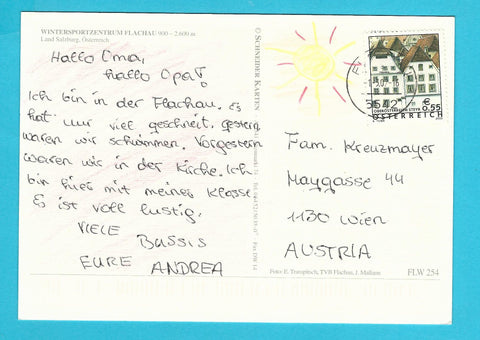 WINTERSPORTZENTRUM FLACHAU 900 – 2.600 m
Land Salzburg, Österreich
Hallo Oma,
hallo Opa!
Ich bin in der Flachau. Es
hat nur viel geschneit, gestern
waren wir schwimmen. Vorgestern
waren wir in der Kirche. Ich
bin hier mit meiner Klasse.
Es ist voll lustig.
VIELE
BUSSIS
EURE ANDREA
© SCHNEIDER KARTEN
5542
€ 0,55
ÖSTERREICH
Fam. Kreuzmayer
Maygasse 44
1130 Wien
AUSTRIA
Foto: E. Trampitsch, TVB Flachau, J. Mallaun
FLW 254